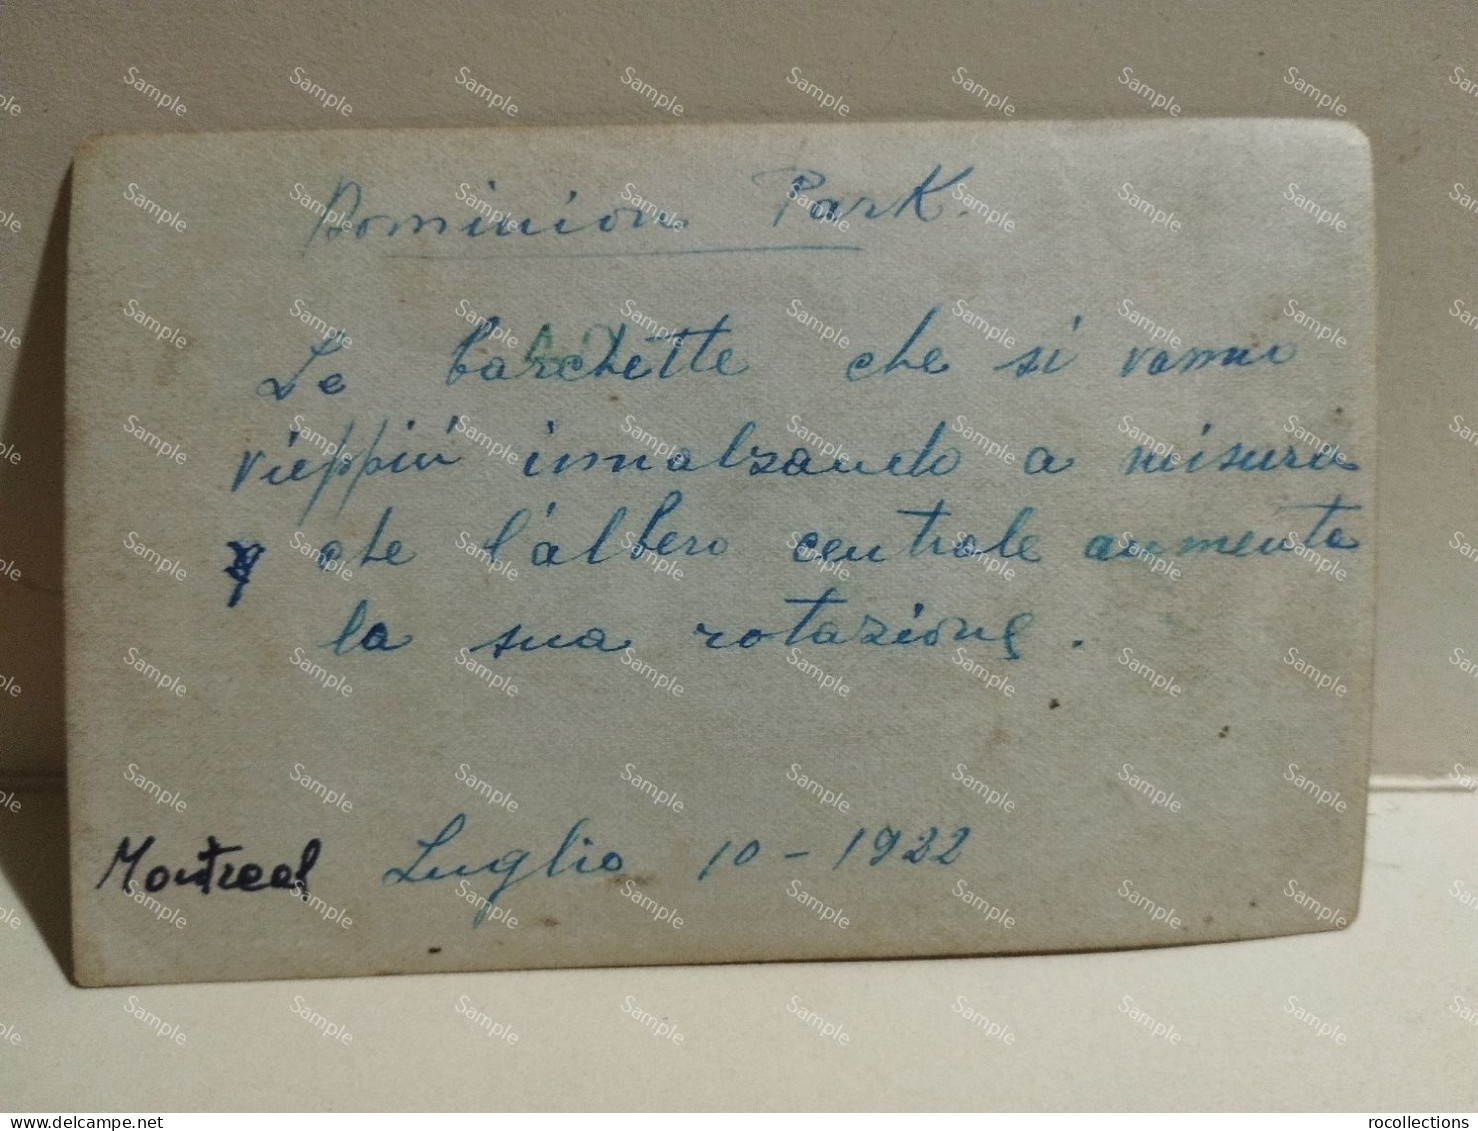 Dominion Park.
Le barchette che si vanno
vieppiú innalzando a misura
che l'albero centrale aumenta
la sua rotazione.
Montreal Luglio 10-1922
rocollections